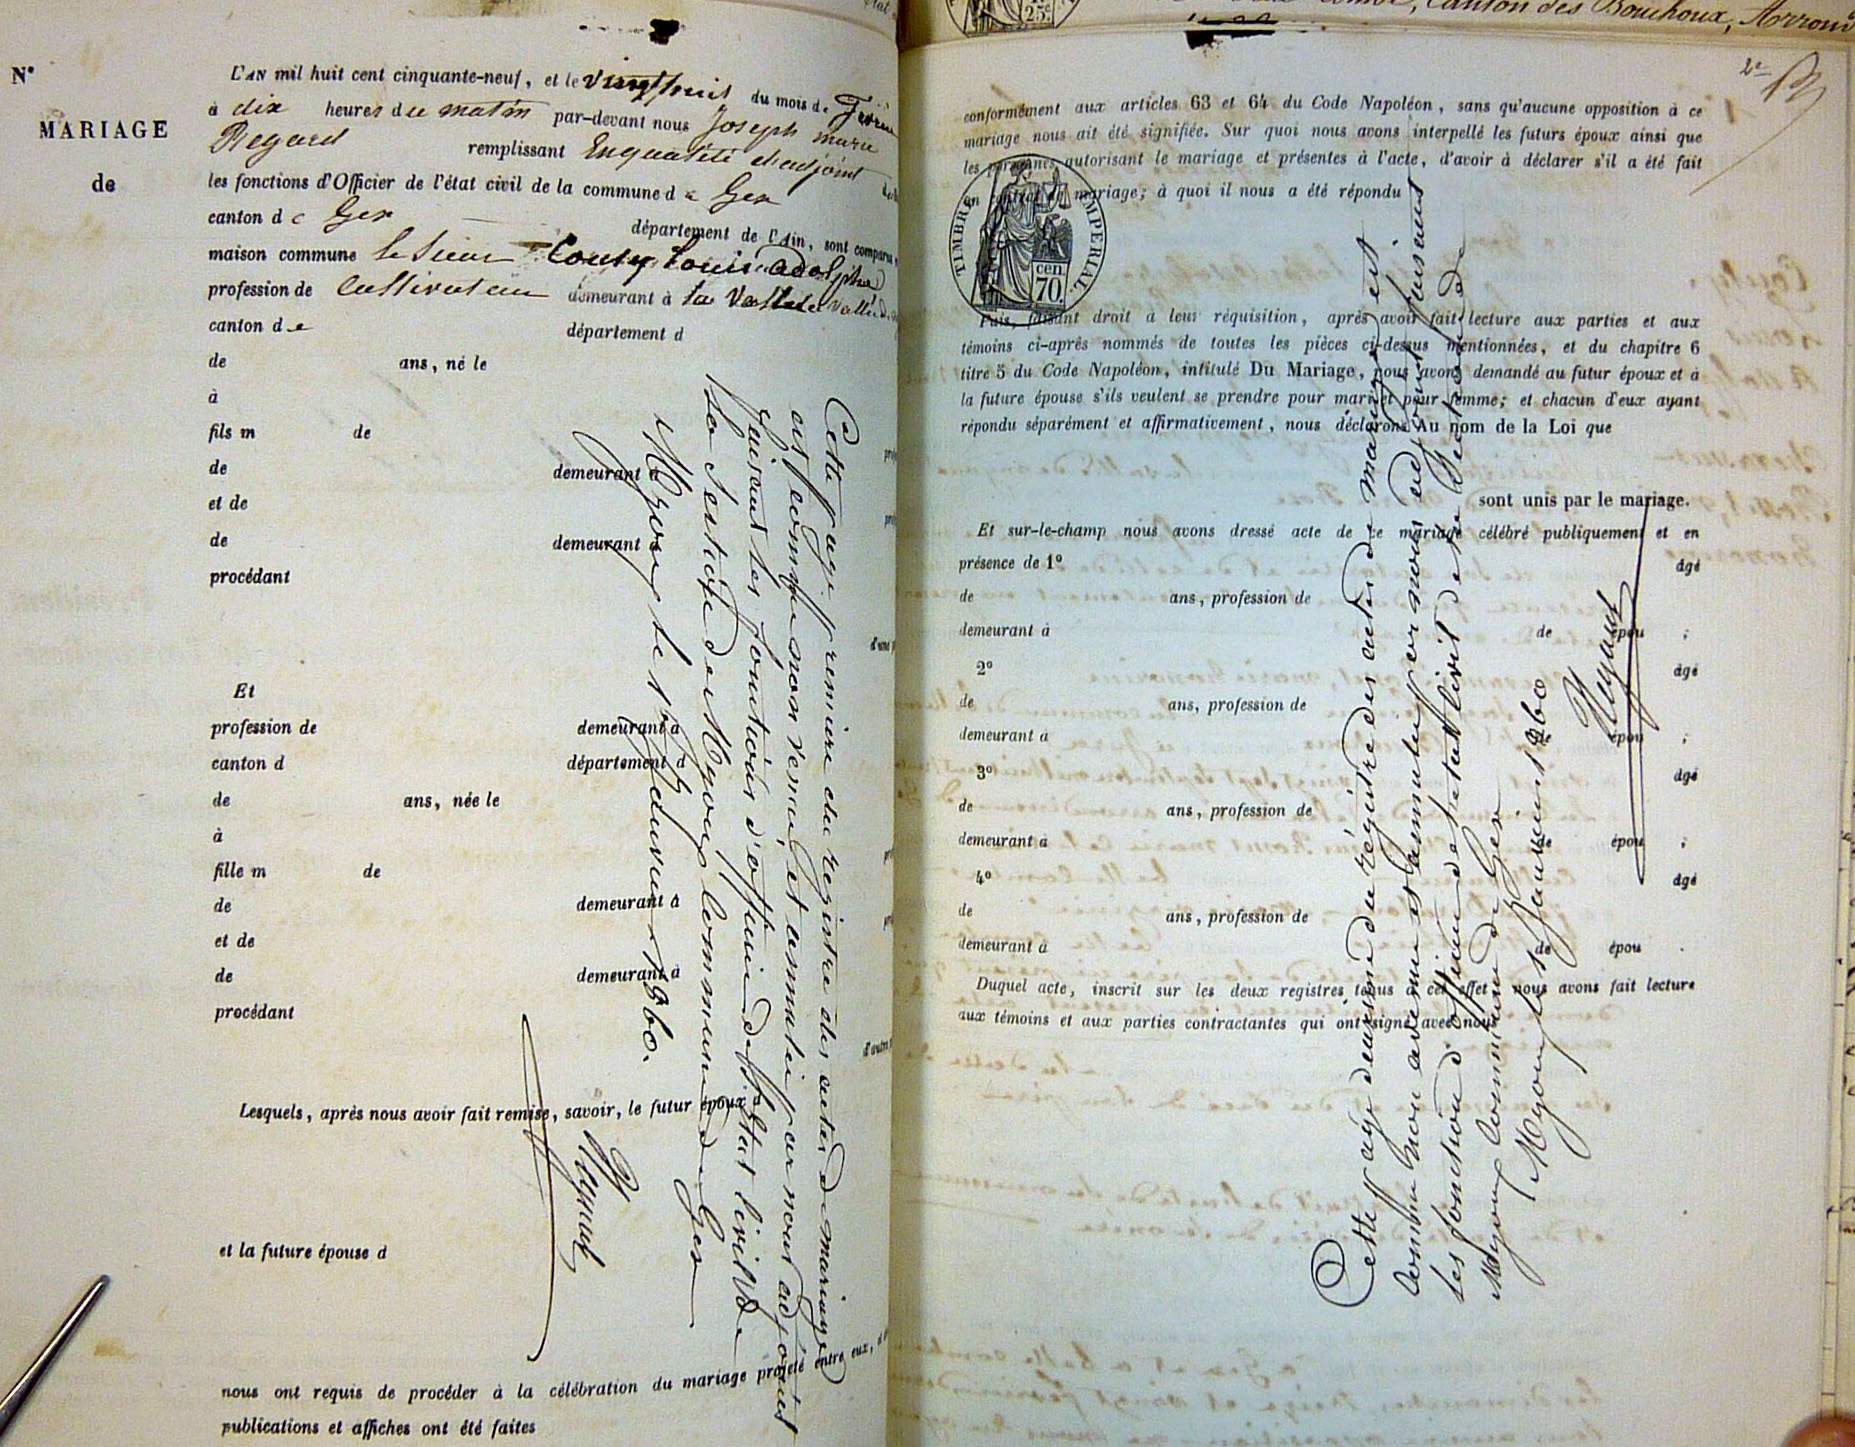 N°
MARIAGE
de
L'AN mil huit cent cinquante-neuf, et le vingt huit du mois de
à dix heures du matin par-devant nous Joseph marie
Regard remplissant Enqualité d'adjoint
les fonctions d'Officier de l'état civil de la commune de Gex
canton de Gex
département de l'Ain, sont comparus
maison commune le Sieur Couty Louis adolphe
profession de Cultivateur demeurant à la
canton de département d
de ans, né le
à
fils m de
de demeurant à
et de
de demeurant à
procédant
d'une p
Et
profession de demeurant à
canton d département d
de ans, née le
à
fille m de
de demeurant à
et de
de demeurant à
procédant
Lesquels, après nous avoir fait remise, savoir, le futur époux
et la future épouse d
nous ont requis de procéder à la célébration du mariage projeté entre eux,
publications et affiches ont été faites
Cette page premiere du registre des actes de mariage
est comme non venue et annulée par nous adjoint
faisant les fonctions d'officier de l'Etat Civil de
la Commune de Gex
1860.
Regard
25c
Canton des Bouchoux, Arrond
2e
conformément aux articles 63 et 64 du Code Napoléon, sans qu'aucune opposition à ce
mariage nous ait été signifiée. Sur quoi nous avons interpellé les futurs époux ainsi que
les personnes autorisant le mariage et présentes à l'acte, d'avoir à déclarer s'il a été fait
un contrat de mariage; à quoi il nous a été répondu
TIMBRE IMPERIAL
70 cen.
Puis, faisant droit à leur réquisition, après avoir fait lecture aux parties et aux
témoins ci-après nommés de toutes les pièces ci-dessus mentionnées, et du chapitre 6
titre 5 du Code Napoléon, intitulé Du Mariage, nous avons demandé au futur époux et à
la future épouse s'ils veulent se prendre pour mari et pour femme; et chacun d'eux ayant
répondu séparément et affirmativement, nous déclarons au nom de la Loi que
sont unis par le mariage.
Et sur-le-champ nous avons dressé acte de ce mariage célébré publiquement et en
présence de 1° âgé
de ans, profession de
demeurant à de épou ;
2° âgé
de ans, profession de
demeurant à de épou ;
3° âgé
de ans, profession de
demeurant à de épou ;
4° âgé
de ans, profession de
demeurant à de épou .
Duquel acte, inscrit sur les deux registres tenus à cet effet, nous avons fait lecture
aux témoins et aux parties contractantes qui ont signé avec nous
Cette page deuxieme du régistre des actes de mariage est
Comme non avenue et annulée par nous adjoint faisant
les fonctions d'officier de l'etat Civil
Commune de Gex
1860
Regard